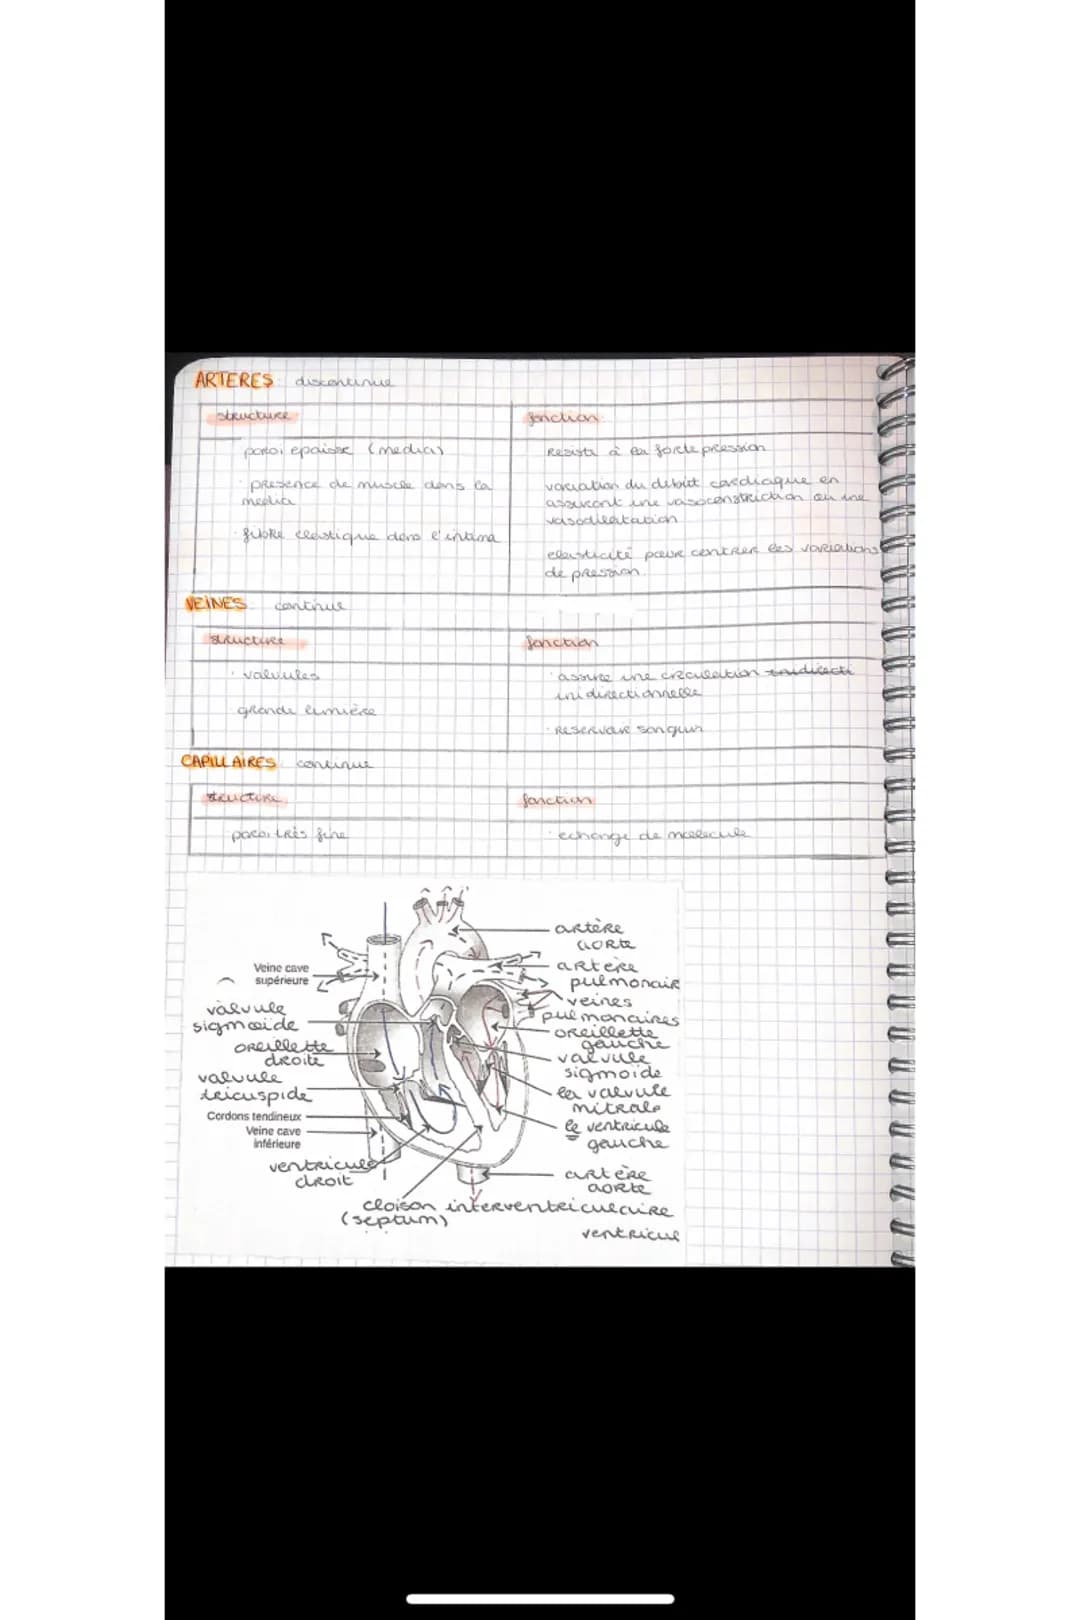 ARTERES discontinue
structure
fonction
paroi epaisse (media)
Resiste à la forte pression
· presence de muscle dans la
media
variation du debit cardiaque en
assurant une vasoconstriction ou une
vasodilatation
· fibre elastique dans l'intima
elasticité pour contrer les variations
de pression
VEINES continue
structure
fonction
· valvules
· assure une circulation unidirecti
unidirectionnelle
grande lumière
· Reservoir sanguin
CAPILLAIRES continue
structure
fonction
paroi très fine
· echange de molecule
artère
aorte
Veine cave
supérieure
artère
pulmonair
veines
pulmonaires
valvule
sigmoide
oreillette
gauche
oreillette
droite
valvule
sigmoide
valvule
tricuspide
la valvule
mitrale
Cordons tendineux
Veine cave
inférieure
le ventricule
gauche
ventricule
droit
artère
aorte
cloison interventriculaire
(septum)
ventricul